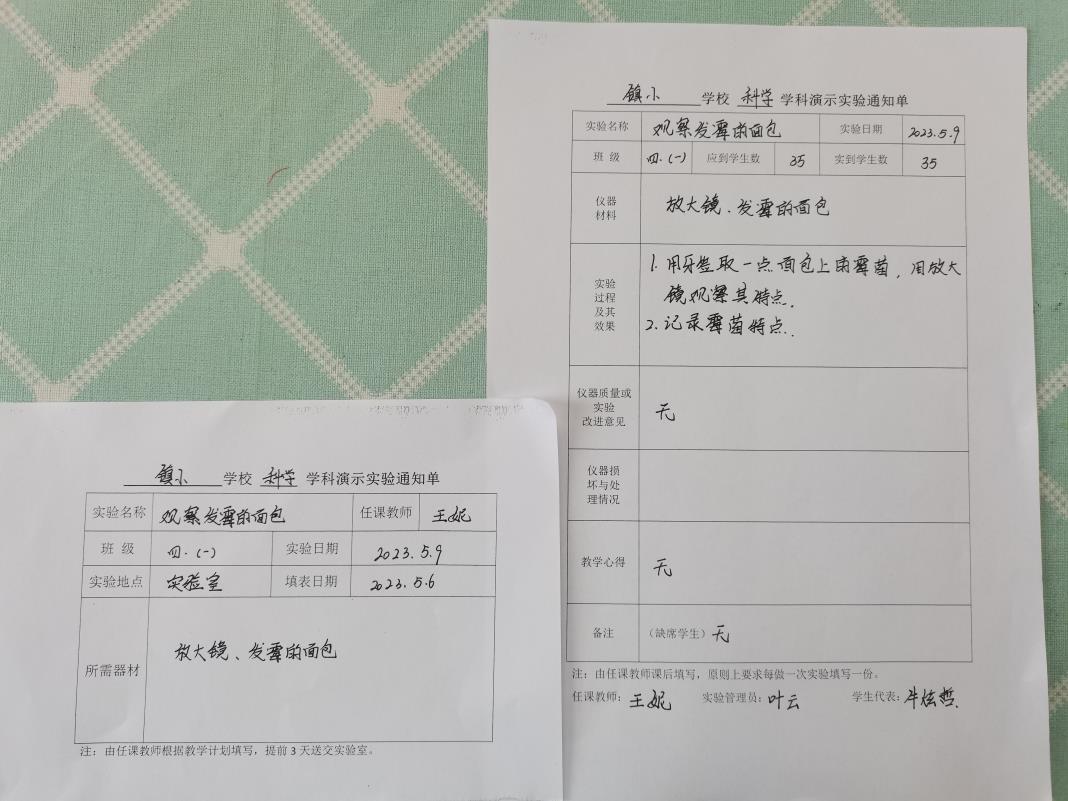 镇小 学校 科学 学科演示实验通知单
实验名称 观察发霉的面包 任课教师 王妮
班 级 四.(一) 实验日期 2023.5.9
实验地点 实验室 填表日期 2023.5.6
所需器材 放大镜、发霉的面包
注：由任课教师根据教学计划填写，提前 3 天送交实验室。
镇小 学校 科学 学科演示实验通知单
实验名称 观察发霉的面包 实验日期 2023.5.9
班 级 四.(一) 应到学生数 35 实到学生数 35
仪器
材料
放大镜、发霉的面包
实验
过程
及其
效果
1. 用牙签取一点面包上的霉菌，用放大
镜观察其特点.
2. 记录霉菌特点.
仪器质量或
实验
改进意见
无
仪器损
坏与处
理情况
教学心得 无
备注 （缺席学生）无
注：由任课教师课后填写，原则上要求每做一次实验填写一份。
任课教师：王妮 实验管理员：叶云 学生代表：牛炫哲.